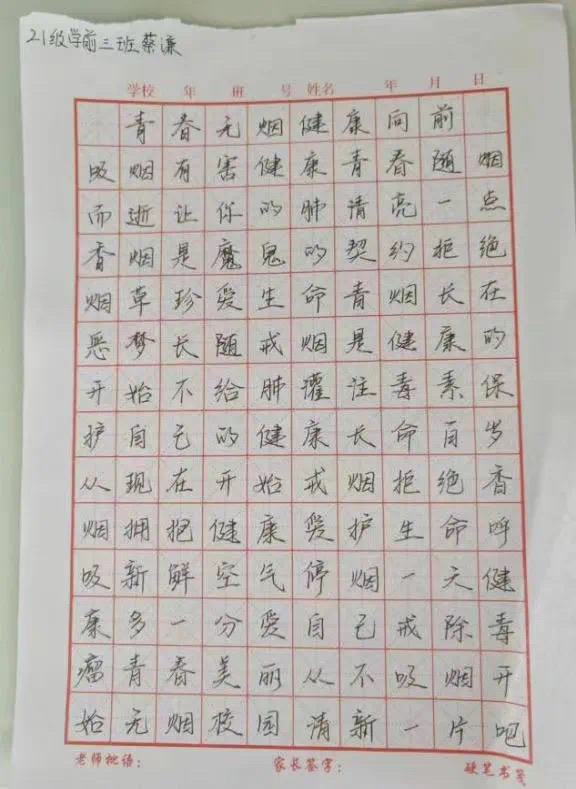 21级学前三班蔡谦
学校 年 班 号 姓名 年 月 日
青春无烟健康向前
吸烟有害健康青春随烟
而逝让你的肺清亮一点
香烟是魔鬼的契约拒绝
烟草珍爱生命青烟长在
恶梦长随戒烟是健康的
开始不给肺灌注毒素保
护自己的健康长命百岁
从现在开始戒烟拒绝香
烟拥抱健康爱护生命呼
吸新鲜空气停烟一天健
康多一分爱自己戒除毒
瘤青春美丽从不吸烟开
始无烟校园清新一片吧
老师批语： 家长签字： 硬笔书笺